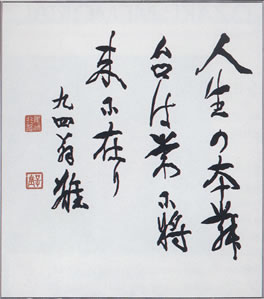 人生の本舞
台は常に将
来に在り
九四翁雄